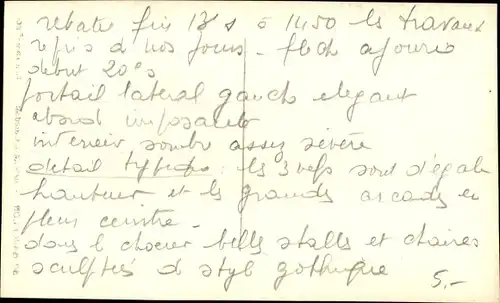 rebatie fin 13e s à 1450 les travaux
repris d nos jours - flech ajourée
debut 20es
portail lateral gauch elegant
abord imposante
interieur sombre assez sévère
detail typique : les 3 nefs sont d'égale
hauteur et les grandes arcades en
plein ceintre -
dans l choeur belles stalles et chaires
sculptés d styl gothique 5.-